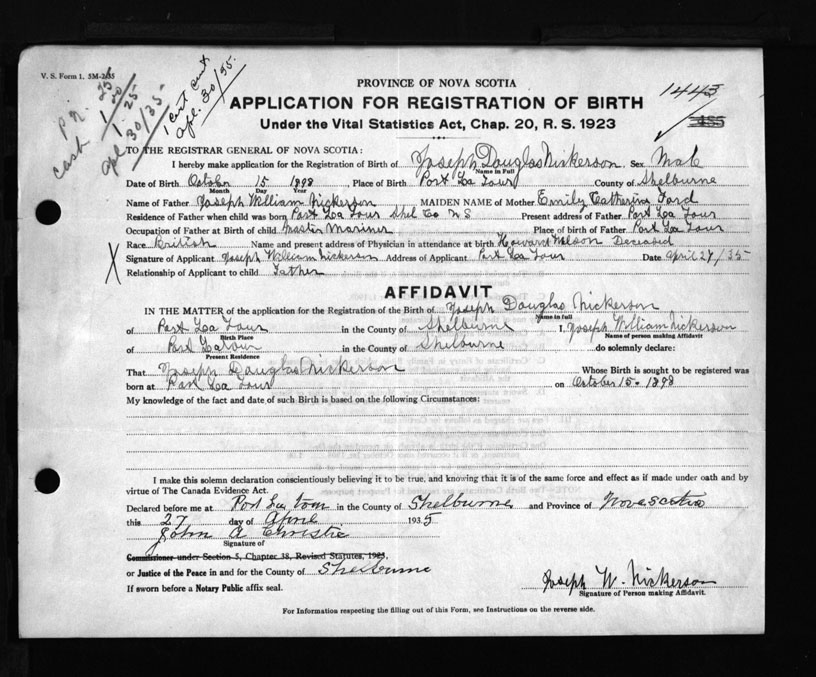 V. S. Form 1. 5M-2-35
p.n. 25
cash 1 20
1.25
apl 30/35
1 cert sent
apl. 30/35.
PROVINCE OF NOVA SCOTIA
1443
APPLICATION FOR REGISTRATION OF BIRTH
Under the Vital Statistics Act, Chap. 20, R. S. 1923
485
TO THE REGISTRAR GENERAL OF NOVA SCOTIA:
I hereby make application for the Registration of Birth of Joseph Douglas Nickerson. Sex Male
Name in Full
Date of Birth October 15 1898, Place of Birth Port La Tour County of Shelburne
Month Day Year
Name of Father Joseph William Nickerson MAIDEN NAME of Mother Emily Catherine Ford
Residence of Father when child was born Port La Tour Shel Co N S Present address of Father Port La Tour
Occupation of Father at Birth of child Master Mariner Place of birth of Father Port La Tour
Race British Name and present address of Physician in attendance at birth Howard Wilson Deceased
Signature of Applicant Joseph William Nickerson Address of Applicant Port La Tour Date April 27/35
X Relationship of Applicant to child Father
AFFIDAVIT
IN THE MATTER of the application for the Registration of the Birth of Joseph Douglas Nickerson
Name in full
of Port La Tour in the County of Shelburne I, Joseph William Nickerson
Birth Place Name of person making Affidavit
of Port Latour in the County of Shelburne do solemnly declare:
Present Residence
That Joseph Douglas Nickerson Whose Birth is sought to be registered was
born at Port La Tour on October 15- 1898
My knowledge of the fact and date of such Birth is based on the following Circumstances:
I make this solemn declaration conscientiously believing it to be true, and knowing that it is of the same force and effect as if made under oath and by
virtue of The Canada Evidence Act.
Declared before me at Port La tour in the County of Shelburne and Province of Nova Scotia
this 27 day of April 1935
John A Christie
Signature of
Commissioner under Section 5, Chapter 38, Revised Statutes, 1923,
or Justice of the Peace in and for the County of Shelburne
Joseph W. Nickerson
If sworn before a Notary Public affix seal.
Signature of Person making Affidavit.
For Information respecting the filling out of this Form, see Instructions on the reverse side.